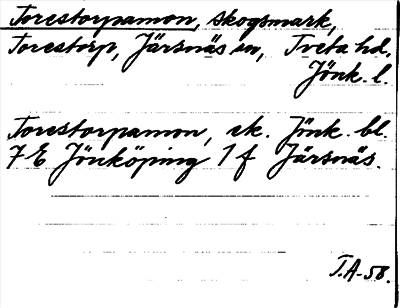 Torestorpamon, skogsmark,
Torestorp, Järsnäs sn, Tveta hd,
Jönk. l.
Torestorpamon, ek. Jönk. bl.
7 E Jönköping 1 f Järsnäs.
T.A-58.